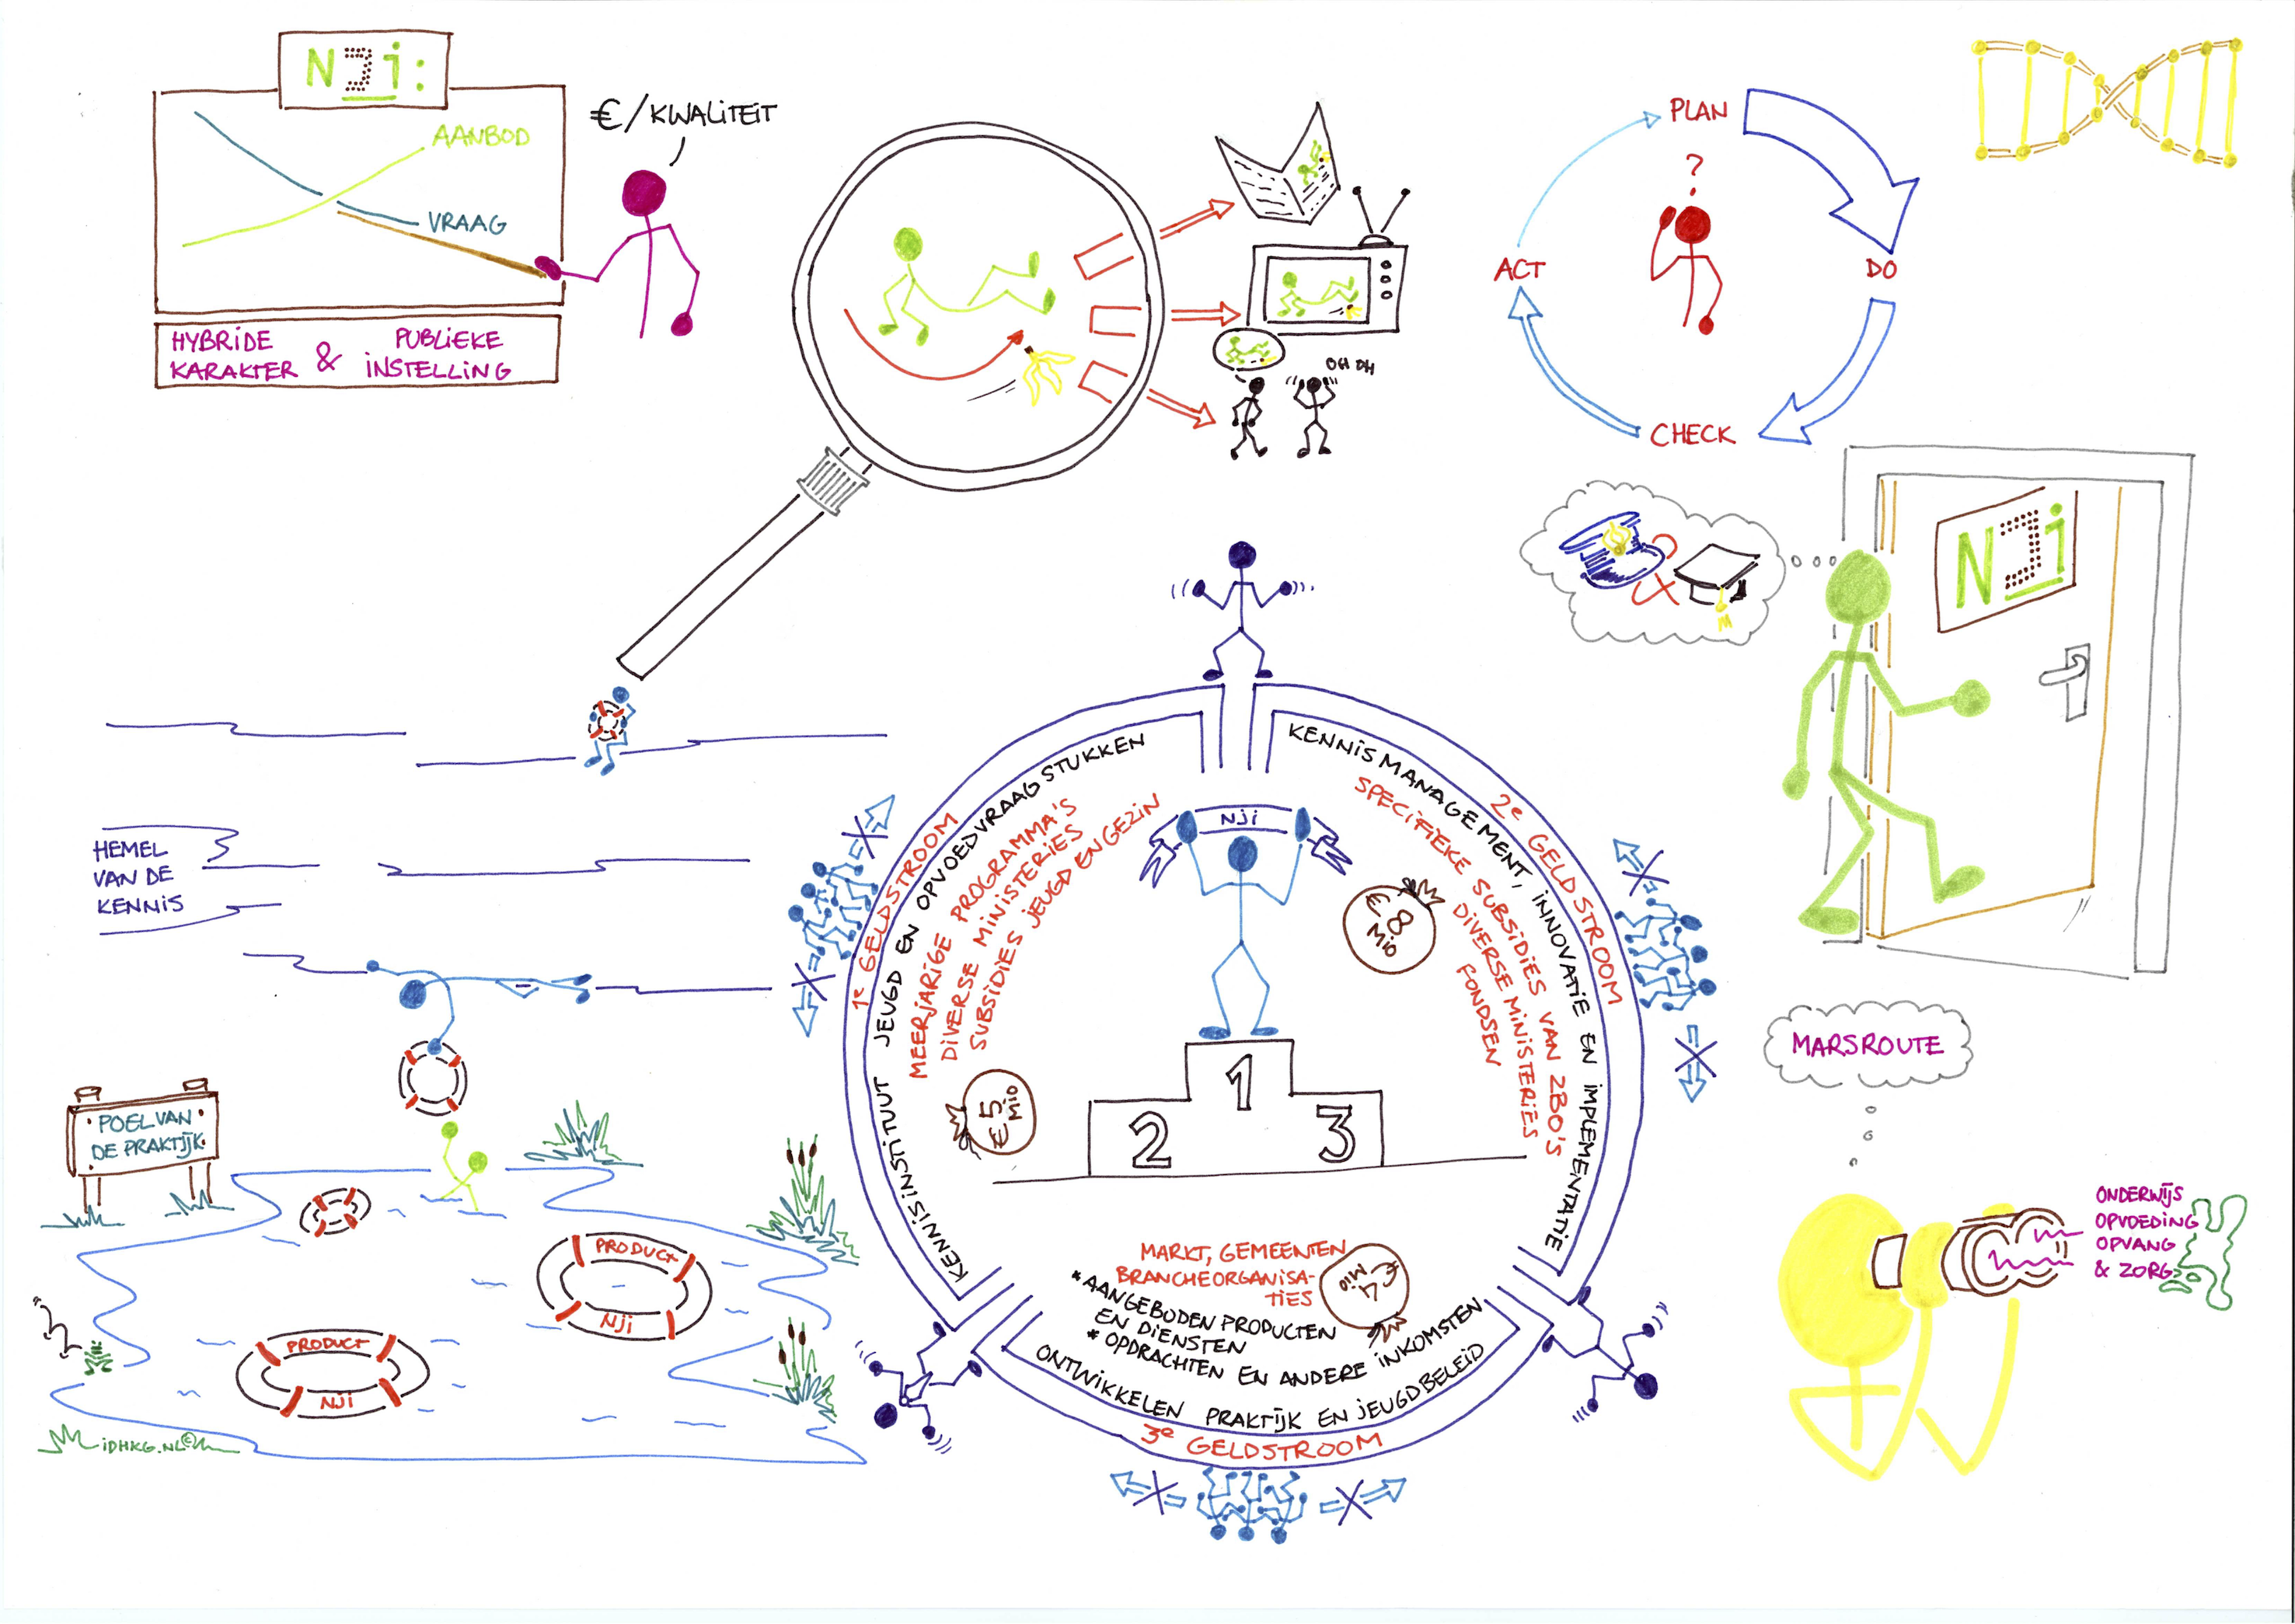 NJi:
AANBOD
VRAAG
€/KWALITEIT
HYBRIDE
KARAKTER & PUBLIEKE
INSTELLING
OH OH
PLAN
?
DO
CHECK
ACT
&
NJi
HEMEL
VAN DE
KENNIS
POEL VAN
DE PRAKTIJK
PRODUCT
NJi
PRODUCT
NJi
iDHKG.NL©
1e GELDSTROOM
KENNISINSTITUUT JEUGD EN OPVOEDVRAAGSTUKKEN
MEERJARIGE PROGRAMMA'S
DIVERSE MINISTERIES
SUBSIDIES JEUGD EN GEZIN
€5
Mio
2e GELDSTROOM
KENNISMANAGEMENT, INNOVATIE EN IMPLEMENTATIE
SPECIFIEKE SUBSIDIES VAN ZBO'S
DIVERSE MINISTERIES
FONDSEN
€8
Mio
NJi
1
2
3
MARKT, GEMEENTEN
BRANCHEORGANISA-
TIES
* AANGEBODEN PRODUCTEN
EN DIENSTEN
* OPDRACHTEN EN ANDERE INKOMSTEN
€4
Mio
ONTWIKKELEN PRAKTIJK EN JEUGDBELEID
3e GELDSTROOM
MARSROUTE
ONDERWIJS
OPVOEDING
OPVANG
& ZORG